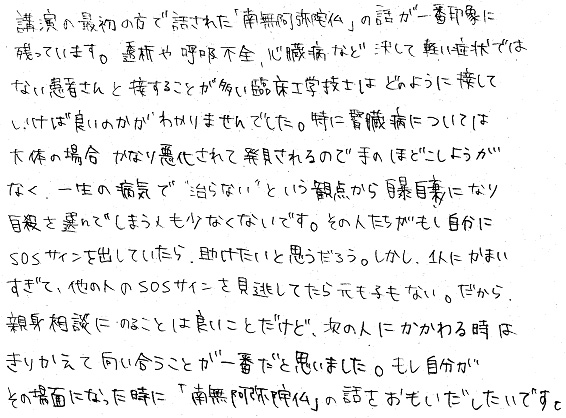 講演の最初の方で話された「南無阿弥陀仏」の話が一番印象に
残っています。透析や呼吸不全、心臓病など決して軽い症状では
ない患者さんと接することが多い臨床工学技士はどのように接して
いけば良いのかがわかりませんでした。特に腎臓病については
大体の場合かなり悪化されて発見されるので手のほどこしようが
なく、一生の病気で"治らない"という観点から自暴自棄になり
自殺を選んでしまう人も少なくないです。その人たちがもし自分に
SOSサインを出していたら、助けたいと思うだろう。しかし、1人にかまい
すぎて、他の人のSOSサインを見逃してたら元も子もない。だから、
親身相談にのることは良いことだけど、次の人にかかわる時は
きりかえて向い合うことが一番だと思いました。もし自分が
その場面になった時に「南無阿弥陀仏」の話をおもいだしたいです。